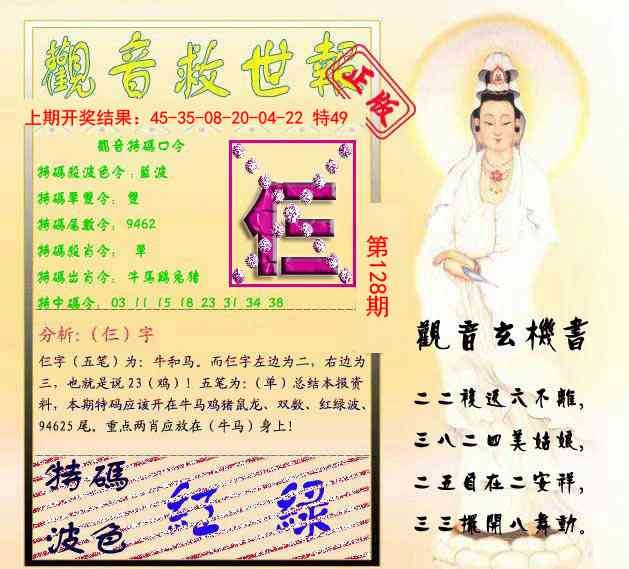 觀音救世報
正版
上期开奖结果：45-35-08-20-04-22 特49
觀音特碼口令
特碼殺波色令：藍波
特碼單雙令： 雙
特碼尾數令： 9462
特碼殺肖令： 單
特碼出肖令： 牛馬鷄兔猪
特中碼令： 03 11 15 18 23 31 34 38
仨
第128期
分析:（仨）字
仨字（五笔）为：牛和马。而仨字左边为二，右边为
三，也就是说 23（鸡）！五笔为：（单）总结本报资
料，本期特码应该开在牛马鸡猪鼠龙、双数、红绿波、
94625 尾。重点两肖应放在（牛马）身上！
特碼
波色
紅 綠
觀音玄機書
二二複退六不離，
三八二四美姑娘，
二五自在二安祥，
三三擺開八舞動。